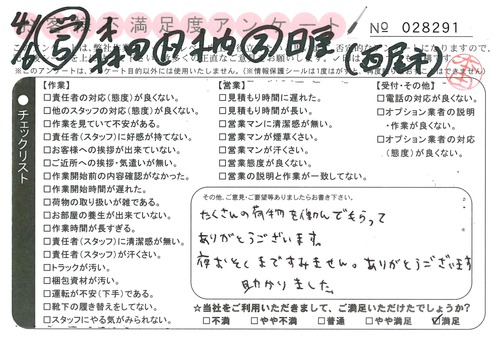 お客様不満足度アンケート
No 028291
4/6 ⑤ 森田 ③ 日曜 (西尾市)
※このアンケートは、アンケート目的以外には使用いたしません。
チェックリスト
【作業】
□責任者の対応(態度)が良くない。
□他のスタッフの対応(態度)が良くない。
□作業を見ていて不安がある。
□責任者(スタッフ)に好感が持てない。
□お客様への挨拶が出来ていない。
□ご近所への挨拶・気遣いが無い。
□作業開始前の内容確認がなかった。
□作業開始時間が遅れた。
□荷物の取り扱いが雑である。
□お部屋の養生が出来ていない。
□作業時間が長すぎる。
□責任者(スタッフ)に清潔感が無い。
□責任者(スタッフ)が汗くさい。
□トラックが汚い。
□梱包資材が汚い。
□運転が不安(下手)である。
□靴下の履き替えをしてない。
□スタッフにやる気がみられない。
【営業】
□見積もり時間に遅れた。
□見積もり時間が長い。
□営業マンに清潔感が無い。
□営業マンが煙草くさい。
□営業マンが汗くさい。
□営業態度が良くない。
□営業の説明と作業が一致してない。
【受付・その他】
□電話の対応が良くない。
□オプション業者の説明
・作業が良くない。
□オプション業者の対応
(態度)が良くない。
その他、ご意見・ご要望等ありましたらお書き下さい。
たくさんの荷物を運んでもらって
ありがとうございます。
夜おそくまですみません。ありがとうございます
助かりました
☆当社をご利用いただきまして、ご満足いただけたでしょうか?
□不満 □やや不満 □普通 □やや満足 ☑満足